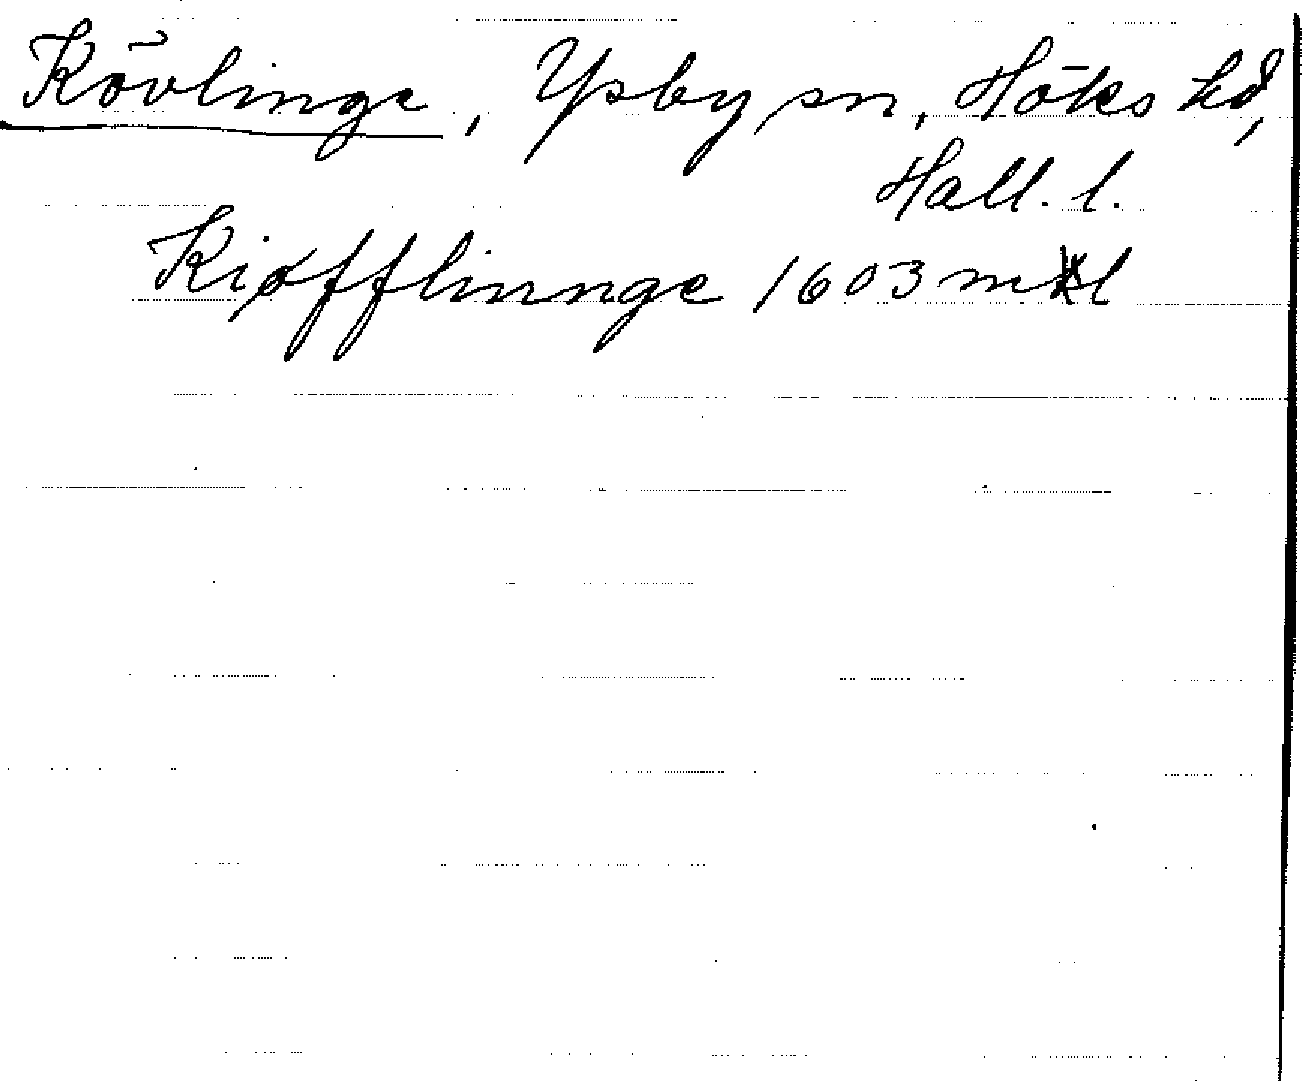 Kövlinge, Ysby sn, Höks hd,
Hall. l.
Kiøfflinnge 1603 ml